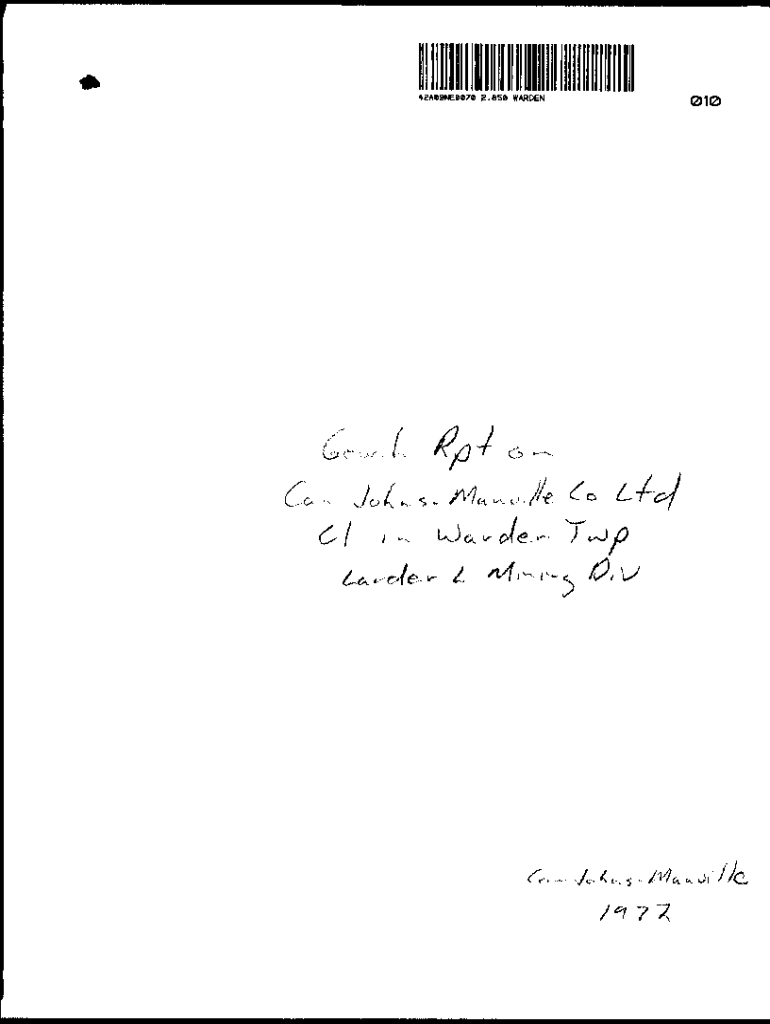 42A09NE0070 2.850 WARDEN
010
Rpt on
Can Johns-Manville Co Ltd
Cl in Warden Twp
Larder L Mining Div
Can Johns-Manville
1972